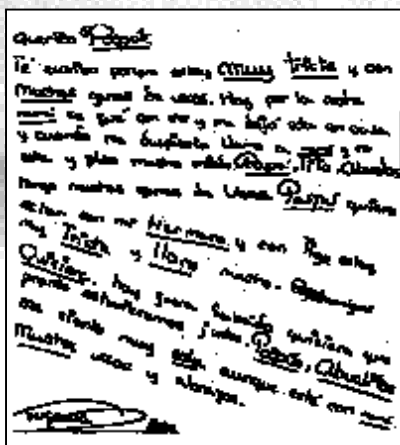 Querido Papá
Te escribo porque estoy Muy triste y con
Muchas ganas de veros. Hoy por la noche
mamá se fue con y me dejó sola en casa
y cuando me Llamo a mamá y no
esta y paso mucho miedo, Papá, Tita, Abuelos
Tengo muchas ganas de Veros Papá quiero
estar con mi Hermano y con estoy
muy Triste y lloro mucho.
Quisiera quisiera que
pronto estuvieramos juntos, Papá, Abuelitos
me siento muy sola aunque esté con mamá.
Muchos besos y abrazos.